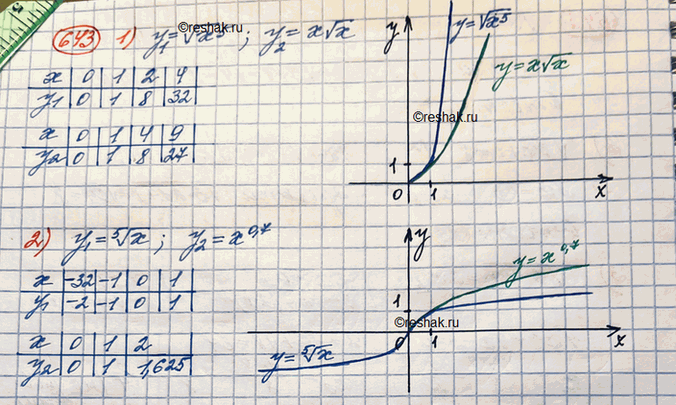 643 1) y₁ = √x⁵ ; y₂ = x√x
©reshak.ru
x 0 1 2 4
y₁ 0 1 8 32
x 0 1 4 9
y₂ 0 1 8 27
y
y = √x⁵
y = x√x
©reshak.ru
1
0 1 x
2) y₁ = ⁵√x ; y₂ = x^0,7
x -32 -1 0 1
y₁ -2 -1 0 1
x 0 1 2
y₂ 0 1 1,625
y
y = x^0,7
1
©reshak.ru
0 1 x
y = ⁵√x